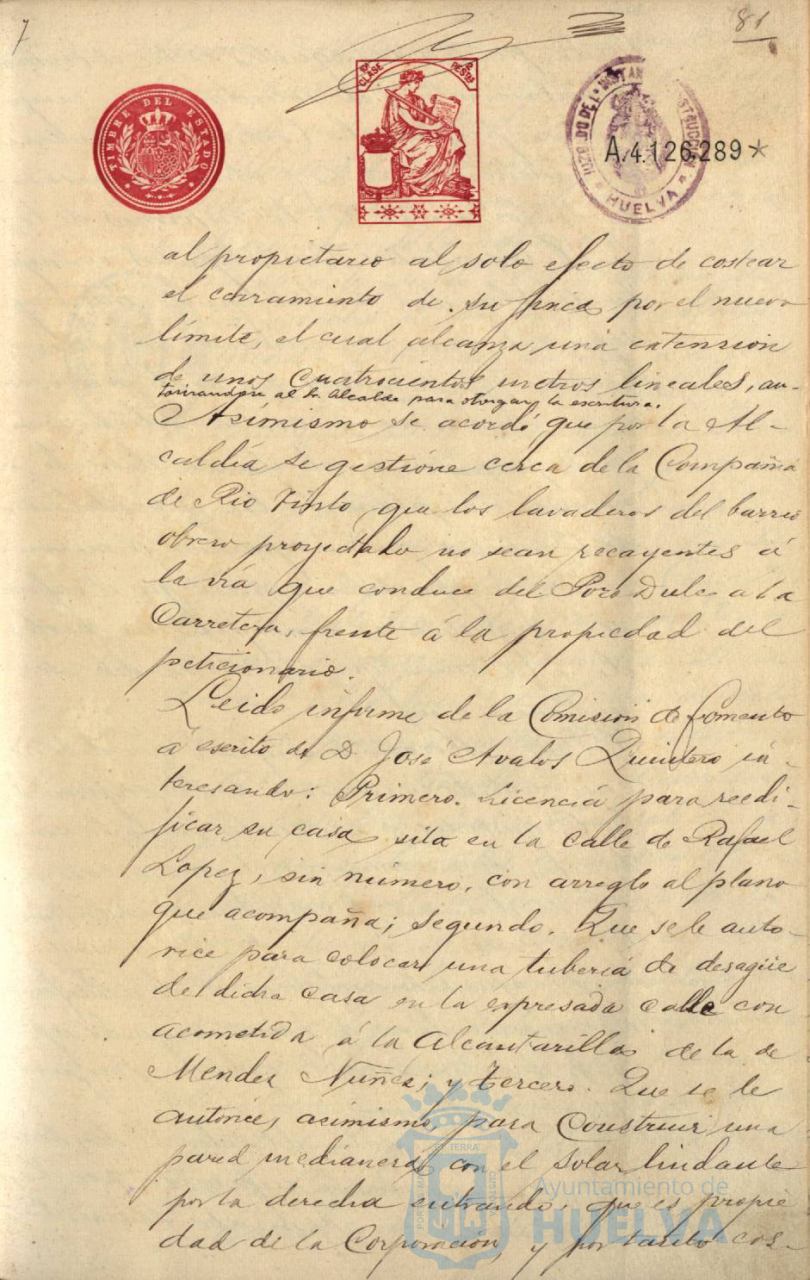 7
81
TIMBRE DEL ESTADO
CLASE
PESETAS
JUZGADO DE 1ª INSTANCIA INSTRUCCION
HUELVA
A.4.126.289*
al propietario al solo efecto de costear
el cerramiento de su finca por el nuevo
límite, el cual alcanza una extension
de unos cuatrocientos metros lineales, au-
torizandose al Sr Alcalde para otorgar la escritura.
Asimismo se acordó que por la Al-
caldía se gestione cerca de la Compañia
de Rio Tinto que los lavaderos del barrio
obrero proyectado no sean recayentes á
la vía que conduce del Pozo Dulce a la
Carretera, frente á la propiedad del
peticionario.
Leido informe de la Comision de Fomento
á escrito de D. José Avalos Quintero in-
teresando: Primero. Licencia para reedi-
ficar su casa sita en la calle de Rafael
Lopez, sin número, con arreglo al plano
que acompaña; segundo. Que se le auto-
rice para colocar una tubería de desagüe
de dicha casa en la expresada calle con
acometida á la Alcantarilla de la de
Mendez Nuñez; y tercero. Que se le
autorice, asimismo, para construir una
pared medianera con el solar lindante
por la derecha entrando, que es propie
dad de la Corporación, y por tanto cos-
Ayuntamiento de
HUELVA